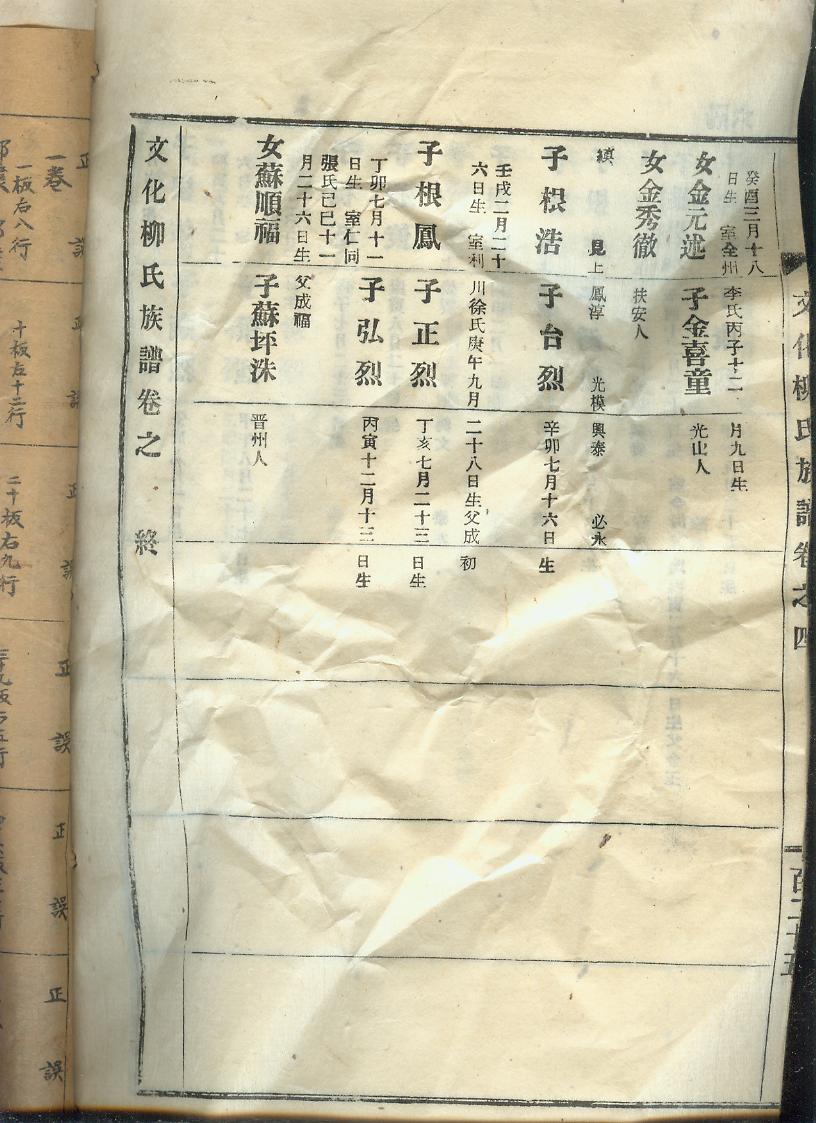 文化柳氏族譜卷之四 百二十五
癸酉三月十八
日生 室全州 李氏丙子十二 月九日生
女金元述 子金喜童 光山人
女金秀徹 扶安人
縝 見上 鳳淳 光模 興泰 必永
子根浩 子台烈 辛卯七月十六日生
壬戌二月二十
六日生 室利川徐氏庚午九月二十八日生父成初
子根鳳 子正烈 丁亥七月二十三日生
丁卯七月十一
日生 室仁同
子弘烈 丙寅十二月十三日生
張氏己巳十一
月二十六日生 父成福
女蘇順福 子蘇坪洙 晋州人
文化柳氏族譜卷之 終
正 誤 正 誤 正 誤 正 誤 正 誤 正 誤
一卷
一板右八行 十板左十三行 二十板右九行